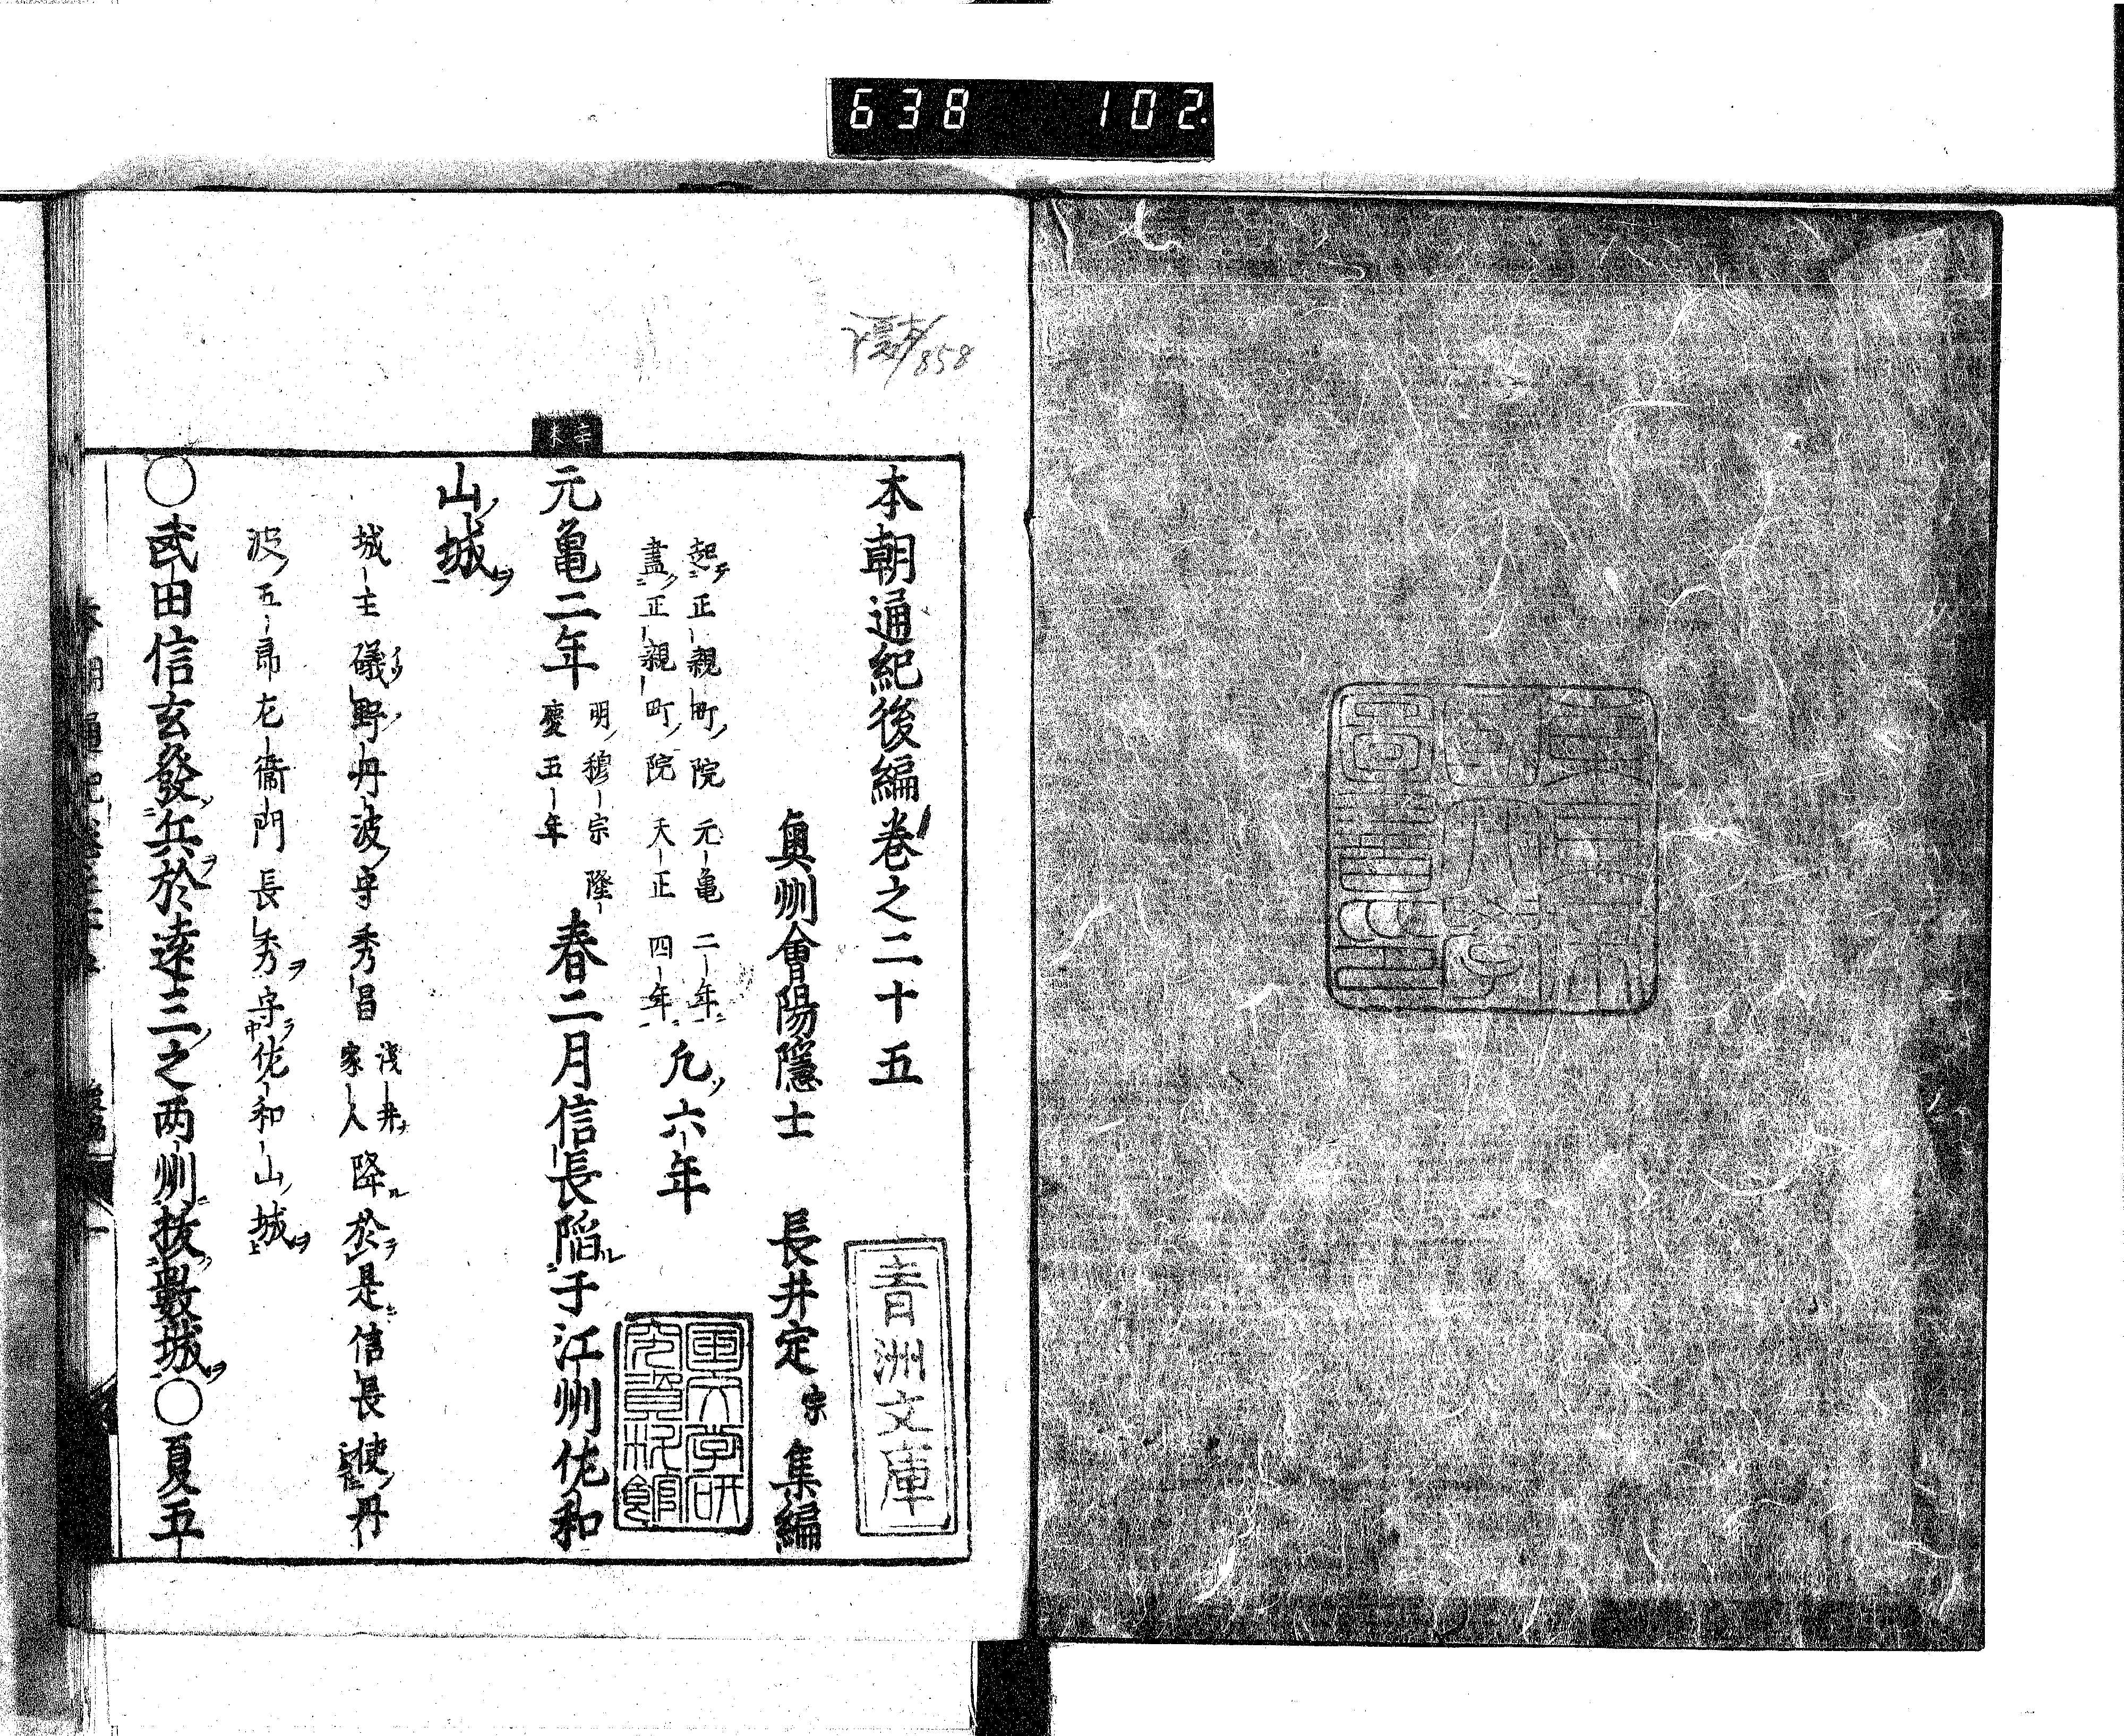 638 102
858
本朝通紀後編卷之二十五
奥州會陽隱士 長井定宗 集編
起テ正親町ノ院元亀二年ニ
盡ク正親町ノ院天正四年ニ 凢ソ六年
元亀二年 明ノ穆宗隆
慶五年 春二月信長陷ル于江州佐和
山ノ城ヲ
城主礒野丹波ノ守秀昌 浅井カ
家人 降ル於是ニ信長使ノ丹
波ノ五郎左衞門長秀ヲ守ラ佐和山ノ城ヲ
○武田信玄發ノ兵ヲ於遠三ノ之両州ニ抜ク數城ヲ○夏五
青洲文庫
国文学研
究資料館